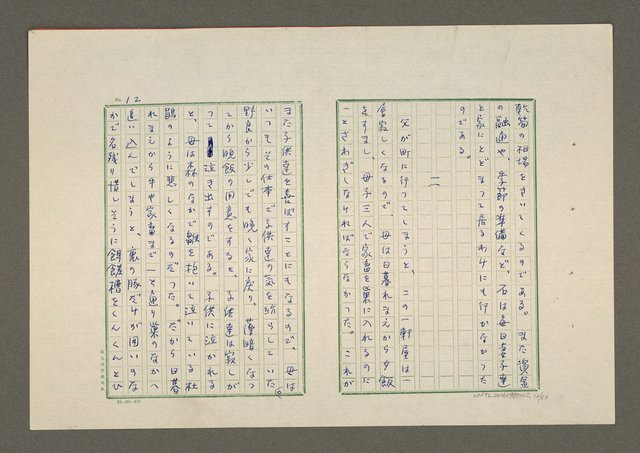 乾筍の相場をきいてくるのである。また資金
の融通や、季節の準備など、石は毎日妻子達
と家にとどまって居るわけにも行かなかった
のである。
二
父が町に行ってしまうと、この一軒屋は一
層寂しくなるので、母は日暮れまえから夕飯
をすまし、母子三人で家畜を巣に入れるのに
一とさわぎしなければならなかった。これが
また子供達を喜ばすことにもなるので、母は
いつもその仕事で子供達の気を紛らしていた。
野良から少しでも晩く家に戻り、薄暗くなっ
てから晩飯の用意をすると、子供達は寂しが
って泣き出すのである。子供に泣かれる
と、母は森のなかで雛を抱いて泣いている杜
鵑のように悲しくなるのだった。だから日暮
れまえから牛や家畜まで一と通り巣のなかへ
追い込んでしまうと、裏の豚だけが囲いのな
かで名残り惜しそうに餌飯槽をくんくんとひ
No. 12